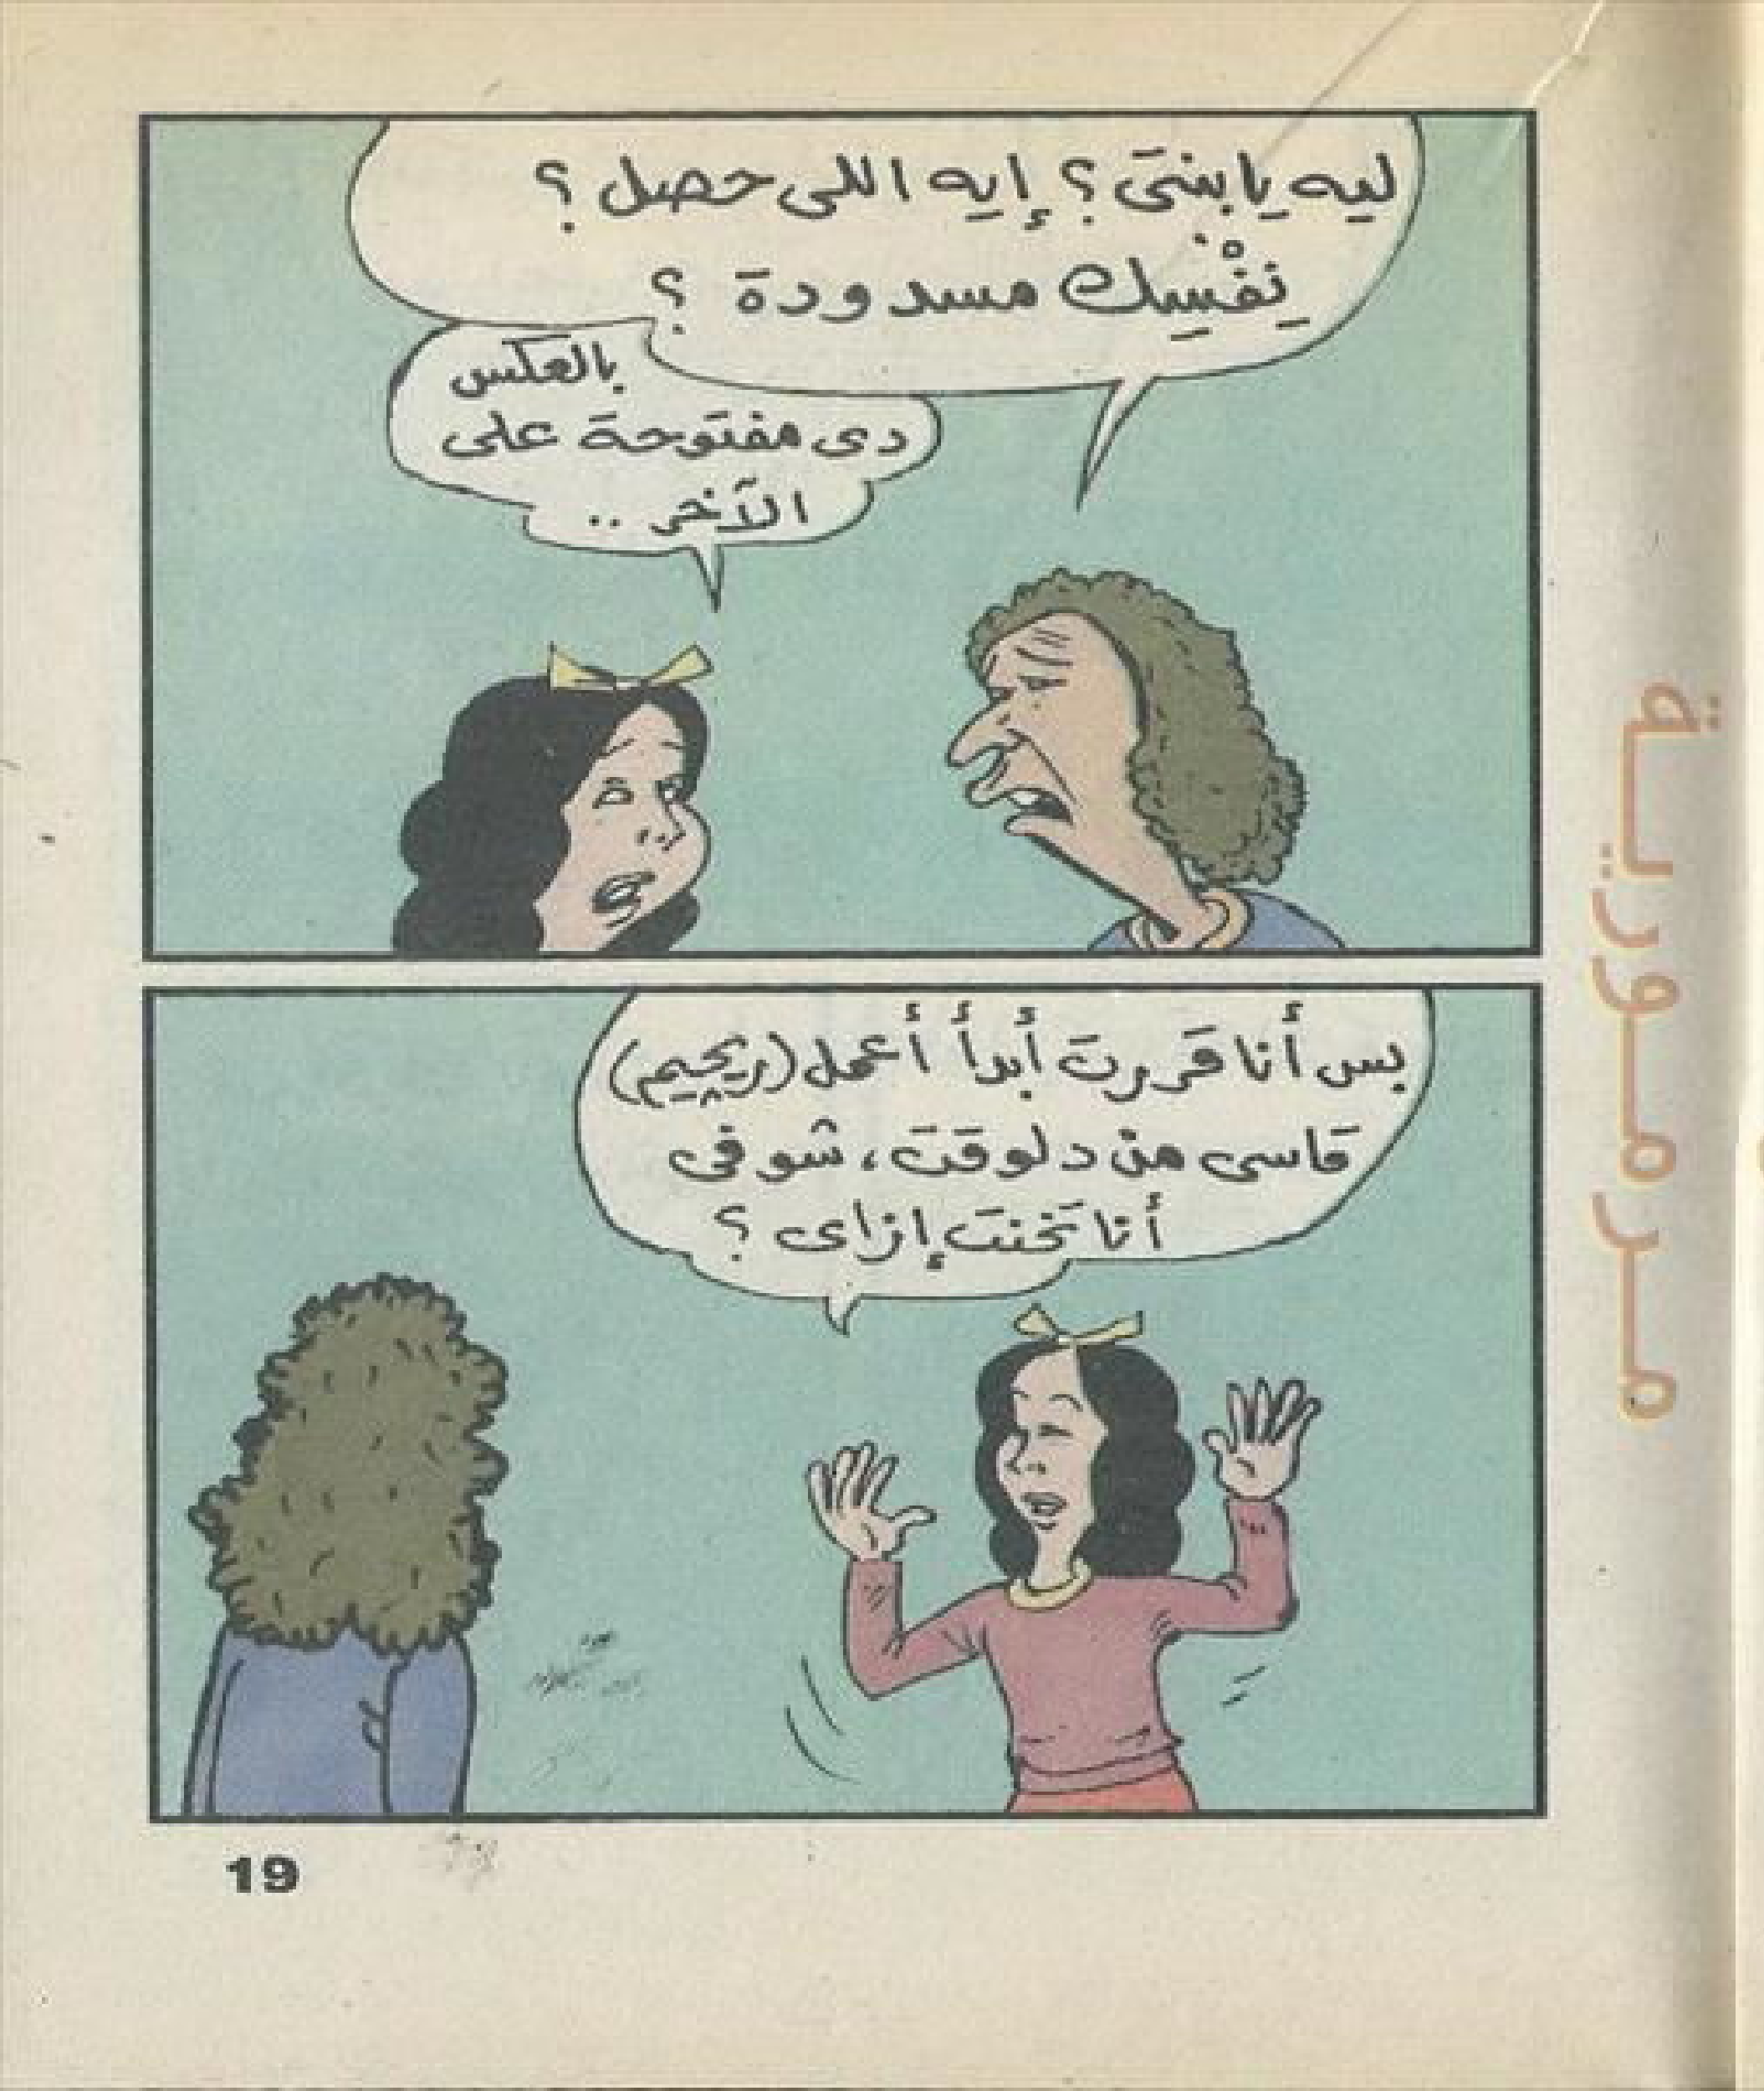 ليه يابنتى؟ إيه اللى حصل؟
نِفْسِك مسدودة؟
بالعكس
دى مفتوحة على
الآخر ..
بس أنا قررت أبدأ أعمل (ريچيم)
قاسى من دلوقت، شوفى
أنا تخنت إزاى؟
مرمورية
19